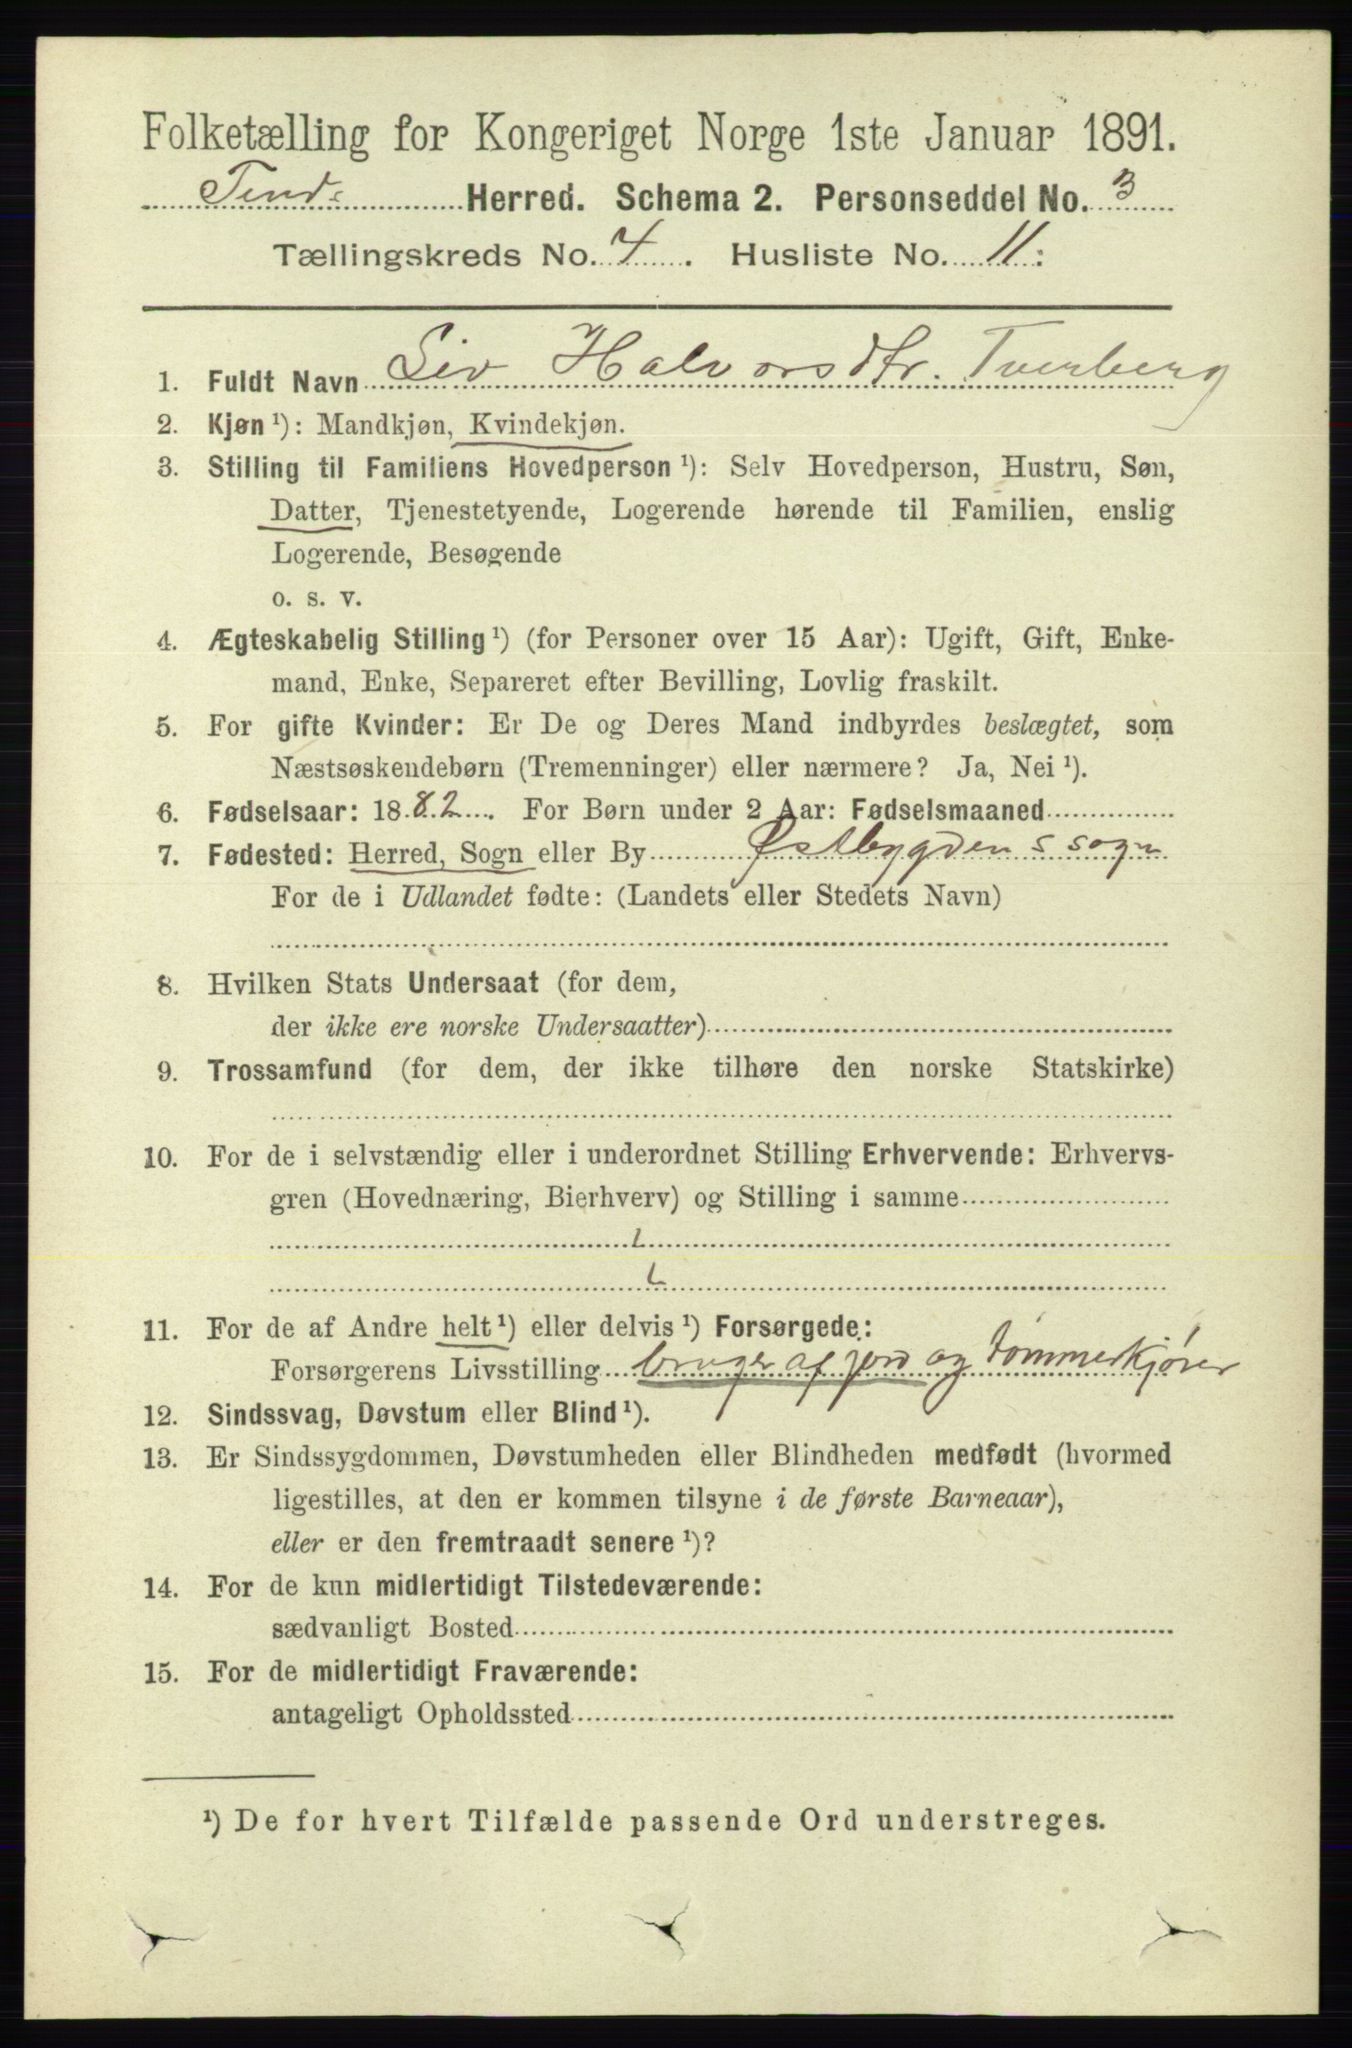 Folketælling for Kongeriget Norge 1ste Januar 1891.
Tinds Herred. Schema 2. Personseddel No. 3
Tællingskreds No. 4. Husliste No. 11:
1. Fuldt Navn Liv Halvorsdtr. Tverberg
2. Kjøn ¹): Mandkjøn, Kvindekjøn.
3. Stilling til Familiens Hovedperson ¹): Selv Hovedperson, Hustru, Søn,
Datter, Tjenestetyende, Logerende hørende til Familien, enslig
Logerende, Besøgende
o. s. v.
4. Ægteskabelig Stilling ¹) (for Personer over 15 Aar): Ugift, Gift, Enke-
mand, Enke, Separeret efter Bevilling, Lovlig fraskilt.
5. For gifte Kvinder: Er De og Deres Mand indbyrdes beslægtet, som
Næstsøskendebørn (Tremenninger) eller nærmere? Ja, Nei ¹).
6. Fødselsaar: 1882. For Børn under 2 Aar: Fødselsmaaned
7. Fødested: Herred, Sogn eller By Østbygdens sogn
For de i Udlandet fødte: (Landets eller Stedets Navn)
8. Hvilken Stats Undersaat (for dem,
der ikke ere norske Undersaatter)
9. Trossamfund (for dem, der ikke tilhøre den norske Statskirke)
10. For de i selvstændig eller i underordnet Stilling Erhvervende: Erhvervs-
gren (Hovednæring, Bierhverv) og Stilling i samme
11. For de af Andre helt ¹) eller delvis ¹) Forsørgede:
Forsørgerens Livsstilling bruger af jord og tømmerkjører
12. Sindssvag, Døvstum eller Blind ¹).
13. Er Sindssygdommen, Døvstumheden eller Blindheden medfødt (hvormed
ligestilles, at den er kommen tilsyne i de første Barneaar),
eller er den fremtraadt senere ¹)?
14. For de kun midlertidigt Tilstedeværende:
sædvanligt Bosted
15. For de midlertidigt Fraværende:
antageligt Opholdssted
¹) De for hvert Tilfælde passende Ord understreges.